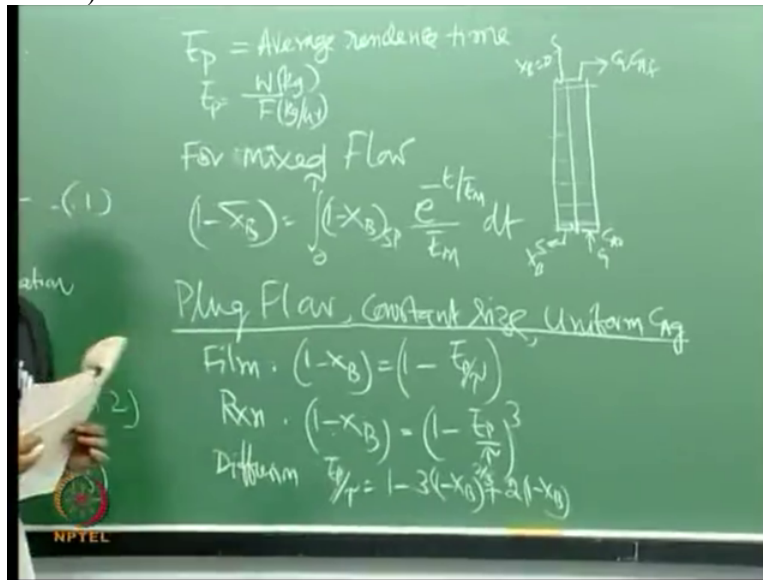 t̄p = Average residence time
t̄p = W(kg) / F(kg/hr)
For mixed Flow
(1-x̄B) = ∫₀^τ (1-xB)SP e^(-t/t̄m) / t̄m dt
Plug Flow, Constant Size, Uniform CAg
Film. (1-xB) = (1 - t̄p/τ)
Rxn. (1-xB) = (1 - t̄p/τ)³
Diffusion t̄p/τ = 1-3(1-xB)^(2/3) + 2(1-xB)
xB=0
(1)
ation
2)
NPTEL